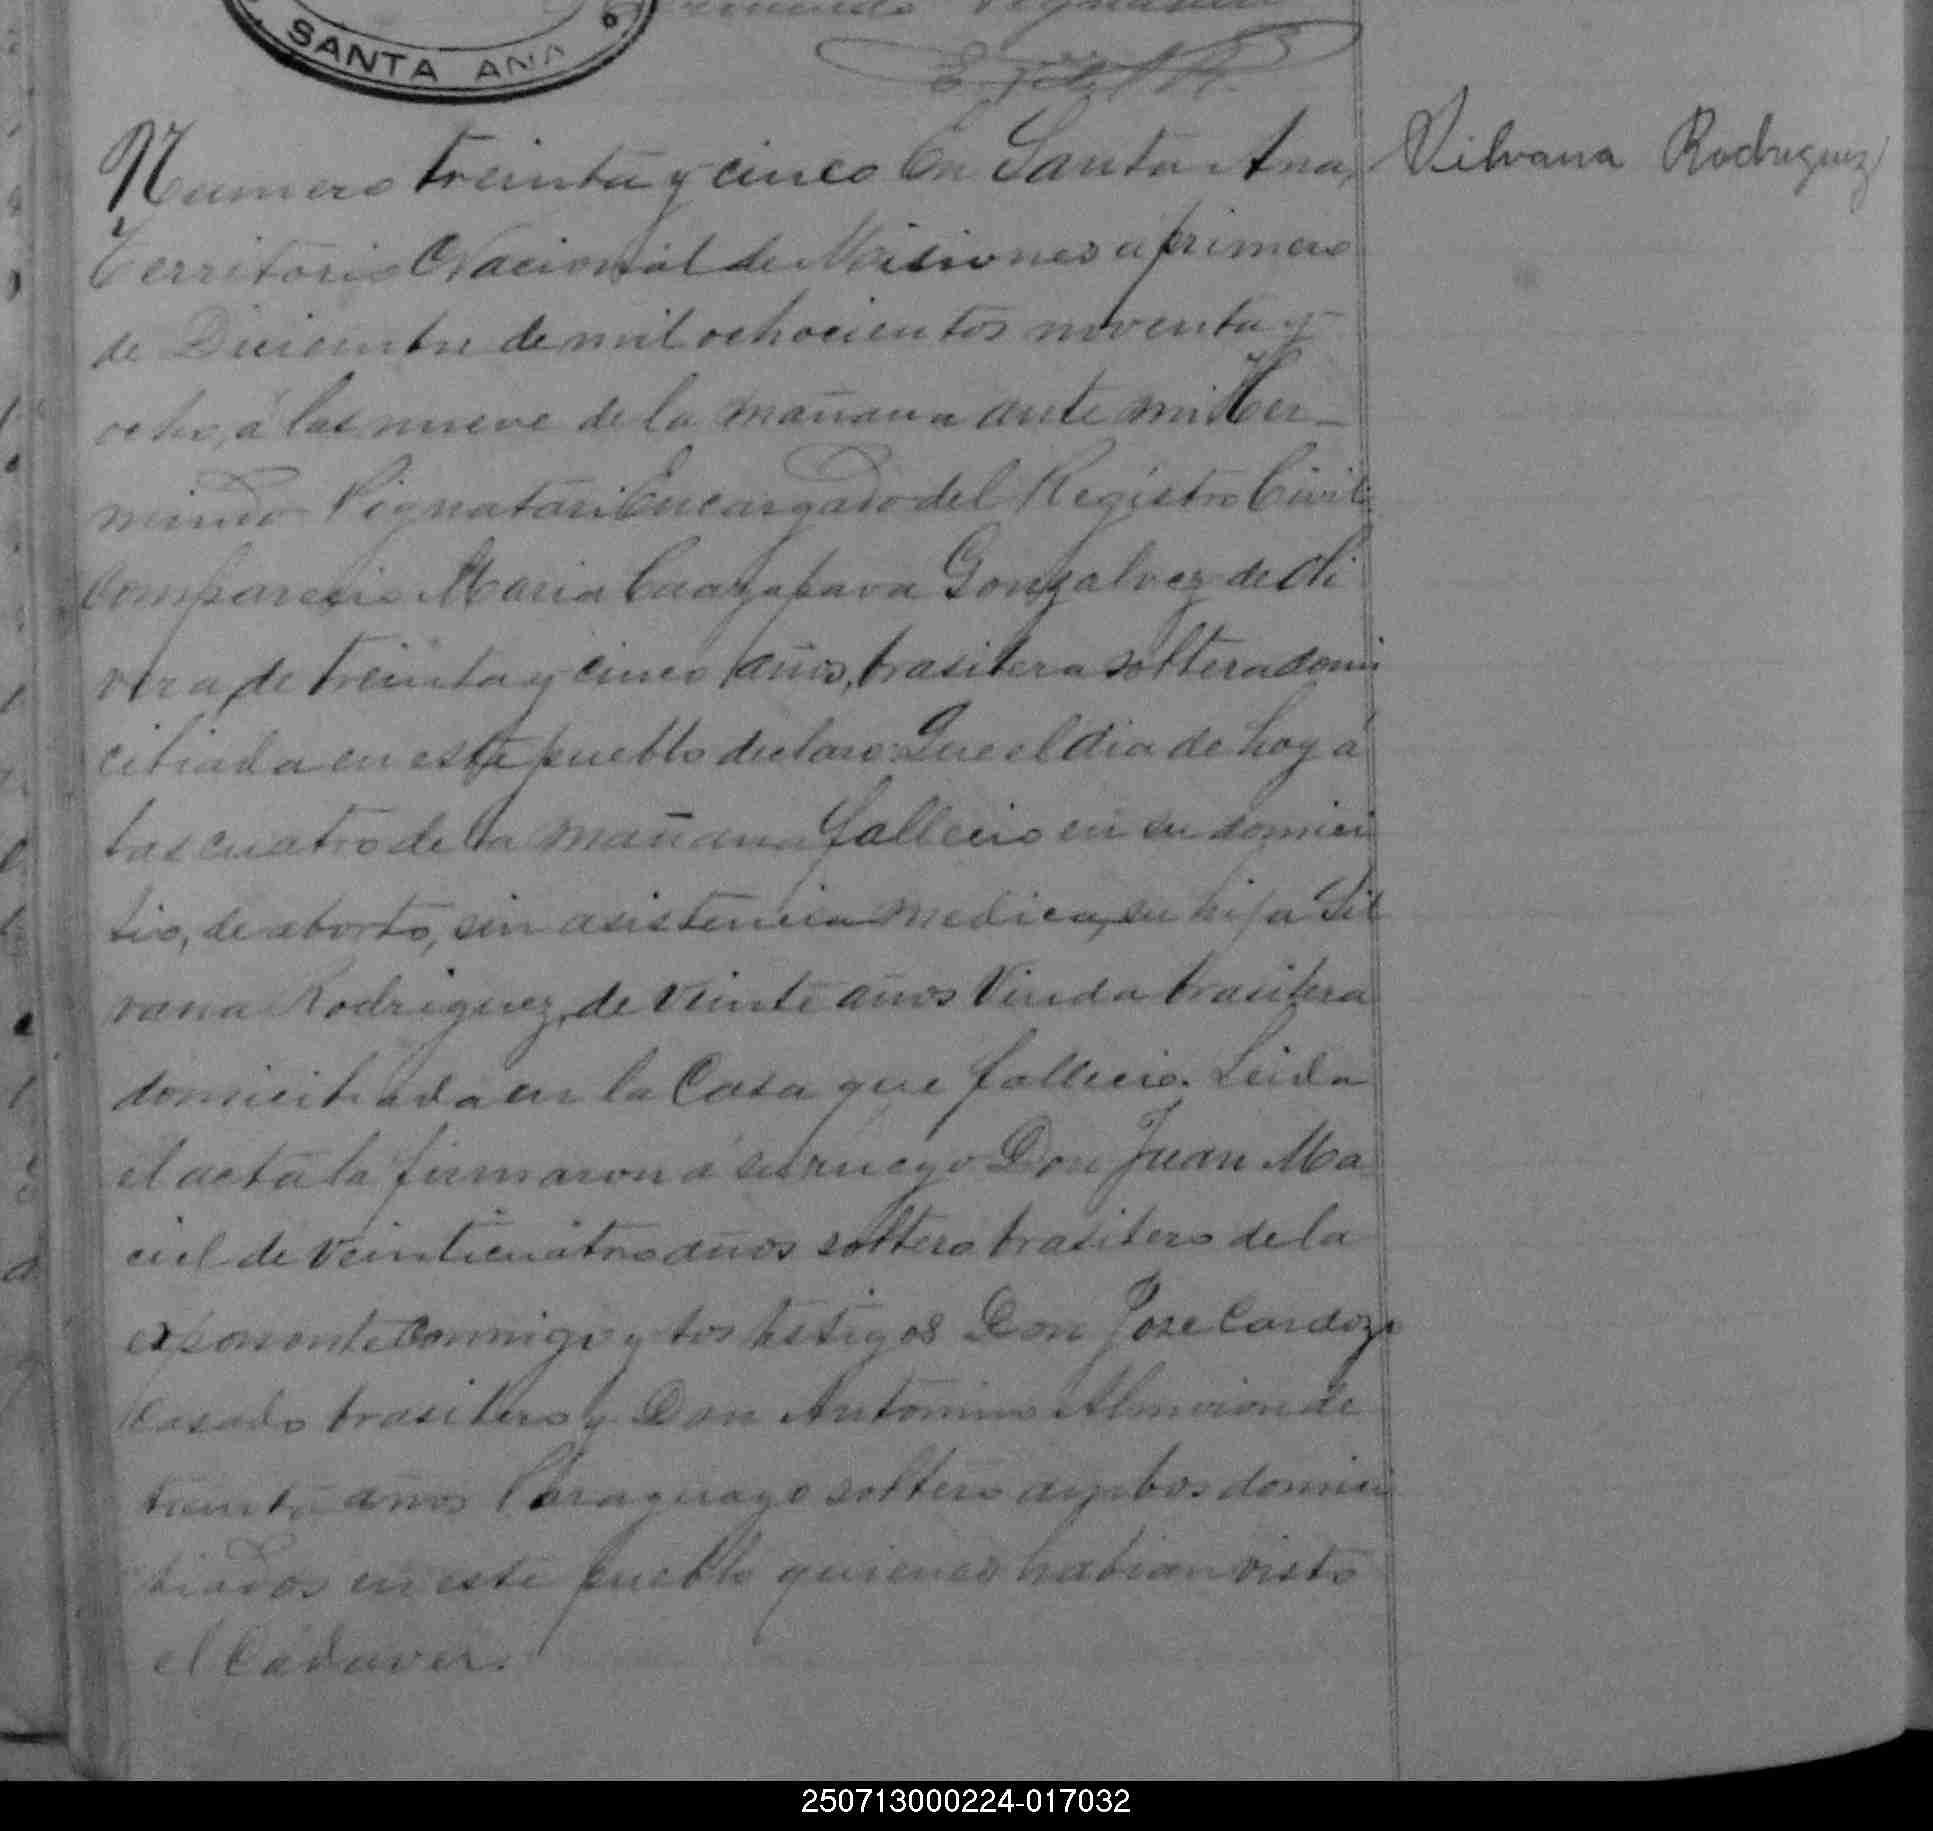 SANTA ANA
Numero treinta y cinco En Santa Ana,
Silvana Rodriguez
Territorio Nacional de Misiones a primero
de Diciembre de mil ochocientos noventa y
ocho, á las nueve de la mañana ante mi Her-
mindo Pignatari Encargado del Registro Civil
comparecio Maria Caazapava Gonzalvez de Oli
vera, de treinta y cinco años, brasilera soltera domi
ciliada en este pueblo declaro: Que el dia de hoy á
las cuatro de la mañana fallecio en su domici
lio, de aborto, sin asistencia medica, su hija Sil
vana Rodriguez, de veinte años Viuda brasilera
domiciliada en la Casa que fallecio. Leida
el acta la firmaron á su ruego Don Juan Ma
ciel de veinticuatro años soltero brasilero de la
exponente conmigo y los testigos Don Jose Cardozo
casado brasilero y Don Antonino de
treinta años Paraguayo soltero ambos domici
liados en este pueblo quienes habian visto
el Cadaver.
250713000224-017032